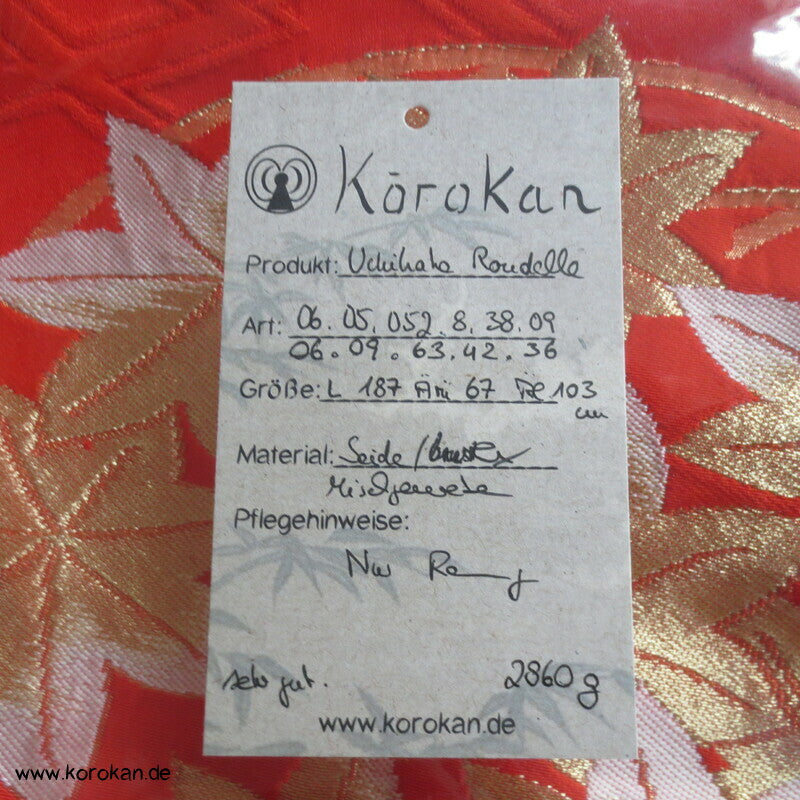 Kōrokan
Produkt: Uchikake Rondelle
Art: 06.05.052.8.38.09
06.09.63.42.36
Größe: L 187 Ärm 67 103
cm
Material: Seide/
Mischgewebe
Pflegehinweise:
Nur
sehr gut. 2860g
www.korokan.de
www.korokan.de